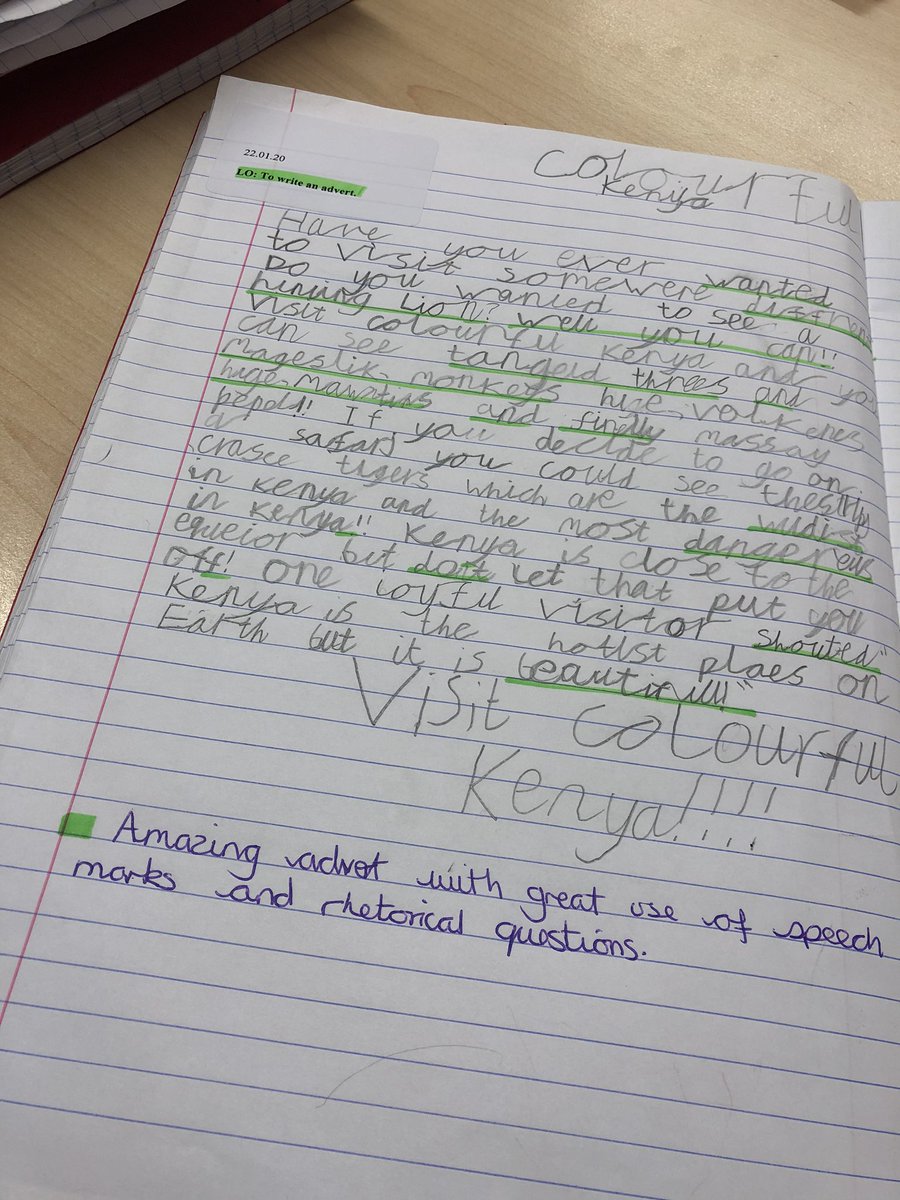 22.01.20
LO: To write an advert.
Colourful
Kenya
Have you ever wanted
to visit somewere diffrent
Do you wanted to see a
huning Lion? Well you can!!
visit colourful Kenya and you
can see tangeld threes and
magestik monkeys huge
huge and finelly massay
pepold! If you decide to go on
a safari you could see
crasee tigers which are the wildist
in Kenya and the most dangereus
in Kenya!! Kenya is close to the
equeior but dont let that put you
off! One loyful visitor shouted"
Kenya is the hottst plaes on
Earth but it is beautifull!"
Visit colourful
Kenya!!!!
Amazing advet with great use of speech
marks and rhetorical questions.